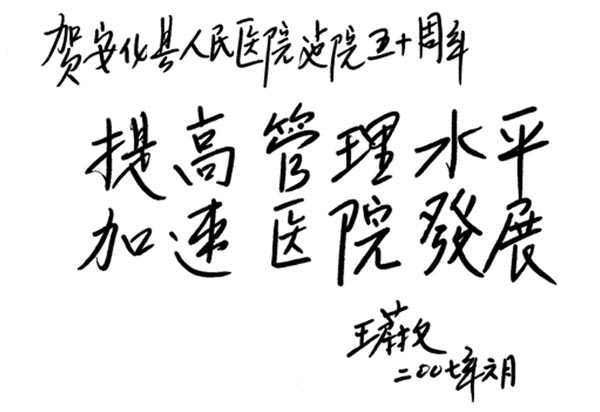 贺安化县人民医院建院五十周年
提高管理水平
加速医院發展
王
二〇〇七年六月